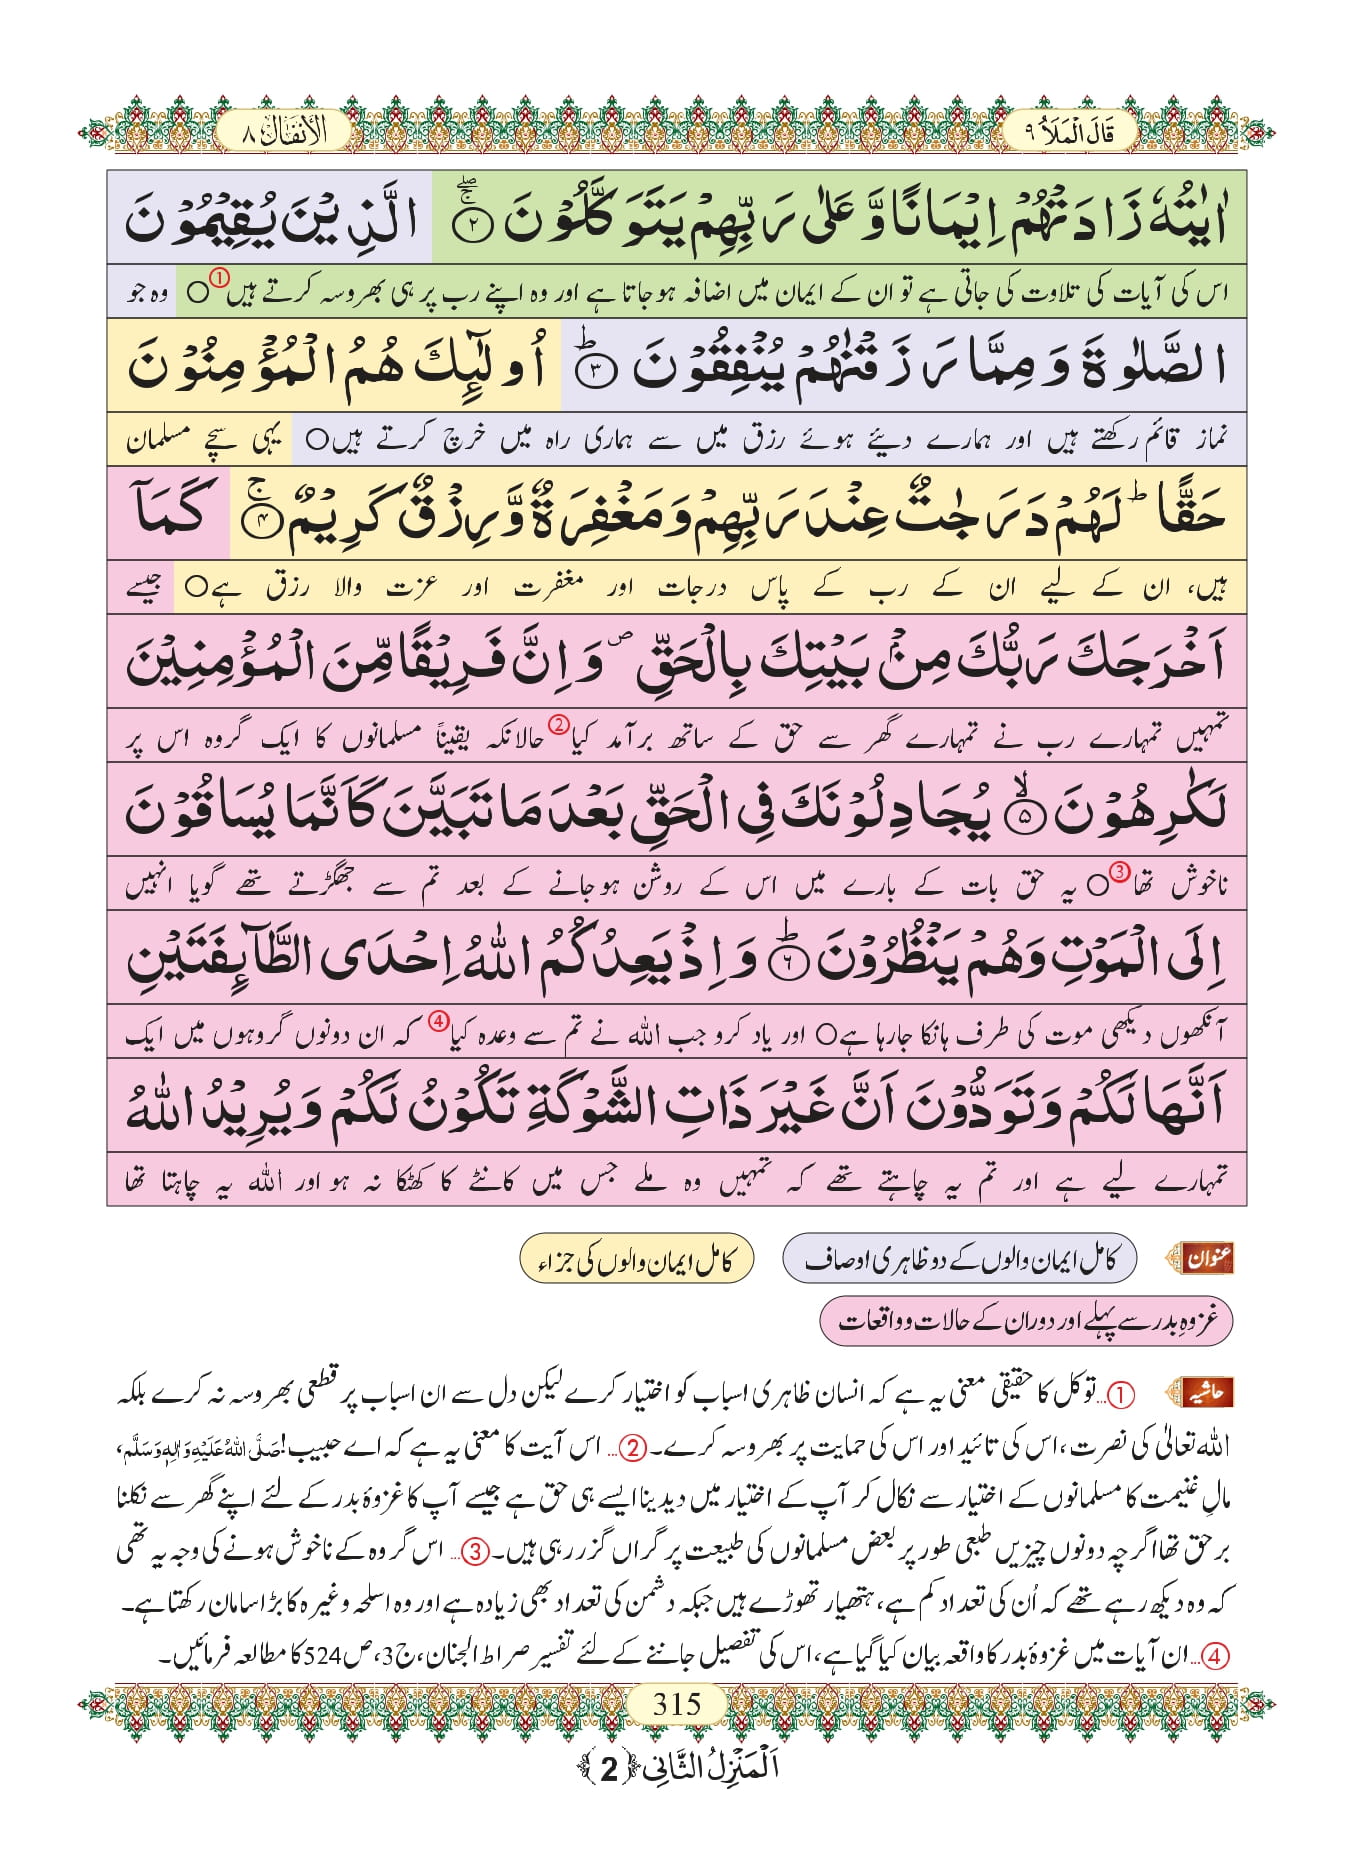 قَالَ الْمَلَاُ ٩
الأنفال ٨
اٰیٰتُهٗ زَادَتْهُمْ اِیْمَانًا وَّ عَلٰى رَبِّهِمْ یَتَوَكَّلُوْنَ ۚۖ۝۲ الَّذِیْنَ یُقِیْمُوْنَ
اس کی آیات کی تلاوت کی جاتی ہے تو ان کے ایمان میں اضافہ ہوجاتا ہے اور وہ اپنے رب پر ہی بھروسہ کرتے ہیں① ○ وہ جو
الصَّلٰوةَ وَ مِمَّا رَزَقْنٰهُمْ یُنْفِقُوْنَ ؕ۝۳ اُولٰٓىٕكَ هُمُ الْمُؤْمِنُوْنَ
نماز قائم رکھتے ہیں اور ہمارے دیئے ہوئے رزق میں سے ہماری راہ میں خرچ کرتے ہیں○ یہی سچے مسلمان
حَقًّا ؕ لَهُمْ دَرَجٰتٌ عِنْدَ رَبِّهِمْ وَ مَغْفِرَةٌ وَّ رِزْقٌ كَرِیْمٌ ۚ۝۴ كَمَاۤ
ہیں، ان کے لیے ان کے رب کے پاس درجات اور مغفرت اور عزت والا رزق ہے○ جیسے
اَخْرَجَكَ رَبُّكَ مِنْۢ بَیْتِكَ بِالْحَقِّ ۪ وَ اِنَّ فَرِیْقًا مِّنَ الْمُؤْمِنِیْنَ
تمہیں تمہارے رب نے تمہارے گھر سے حق کے ساتھ برآمد کیا② حالانکہ یقیناً مسلمانوں کا ایک گروہ اس پر
لَكٰرِهُوْنَ ۙ۝۵ یُجَادِلُوْنَكَ فِی الْحَقِّ بَعْدَ مَا تَبَیَّنَ كَاَنَّمَا یُسَاقُوْنَ
ناخوش تھا③○ یہ حق بات کے بارے میں اس کے روشن ہوجانے کے بعد تم سے جھگڑتے تھے گویا انہیں
اِلَى الْمَوْتِ وَ هُمْ یَنْظُرُوْنَ ؕ۝۶ وَ اِذْ یَعِدُكُمُ اللّٰهُ اِحْدَى الطَّآىٕفَتَیْنِ
آنکھوں دیکھی موت کی طرف ہانکا جارہا ہے○ اور یاد کرو جب اللہ نے تم سے وعدہ کیا④ کہ ان دونوں گروہوں میں ایک
اَنَّهَا لَكُمْ وَ تَوَدُّوْنَ اَنَّ غَیْرَ ذَاتِ الشَّوْكَةِ تَكُوْنُ لَكُمْ وَ یُرِیْدُ اللّٰهُ
تمہارے لیے ہے اور تم یہ چاہتے تھے کہ تمہیں وہ ملے جس میں کانٹے کا کھٹکا نہ ہو اور اللہ یہ چاہتا تھا
عنوان کامل ایمان والوں کے دو ظاہری اوصاف کامل ایمان والوں کی جزاء
غزوہِ بدر سے پہلے اور دوران کے حالات و واقعات
حاشیہ ①...توکل کا حقیقی معنی یہ ہے کہ انسان ظاہری اسباب کو اختیار کرے لیکن دل سے ان اسباب پر قطعی بھروسہ نہ کرے بلکہ
اللہ تعالیٰ کی نصرت، اس کی تائید اور اس کی حمایت پر بھروسہ کرے۔②... اس آیت کا معنی یہ ہے کہ اے حبیب! صَلَّی اللہُ عَلَیْہِ وَاٰلِہٖ وَسَلَّم،
مالِ غنیمت کا مسلمانوں کے اختیار سے نکال کر آپ کے اختیار میں دیدینا ایسے ہی حق ہے جیسے آپ کا غزوۂ بدر کے لئے اپنے گھر سے نکلنا
برحق تھا اگرچہ دونوں چیزیں طبعی طور پر بعض مسلمانوں کی طبیعت پر گراں گزر رہی ہیں۔③... اس گروہ کے ناخوش ہونے کی وجہ یہ تھی
کہ وہ دیکھ رہے تھے کہ اُن کی تعداد کم ہے، ہتھیار تھوڑے ہیں جبکہ دشمن کی تعداد بھی زیادہ ہے اور وہ اسلحہ وغیرہ کا بڑا سامان رکھتا ہے۔
④...ان آیات میں غزوۂ بدر کا واقعہ بیان کیا گیا ہے، اس کی تفصیل جاننے کے لئے تفسیر صراط الجنان، ج3، ص524 کا مطالعہ فرمائیں۔
315
اَلْمَنْزِلُ الثَّانِی ﴿2﴾